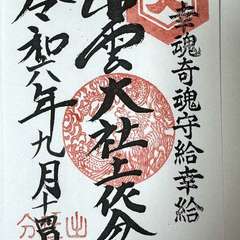 幸魂奇魂守給幸給
出雲大社土佐分
令和六年九月十四